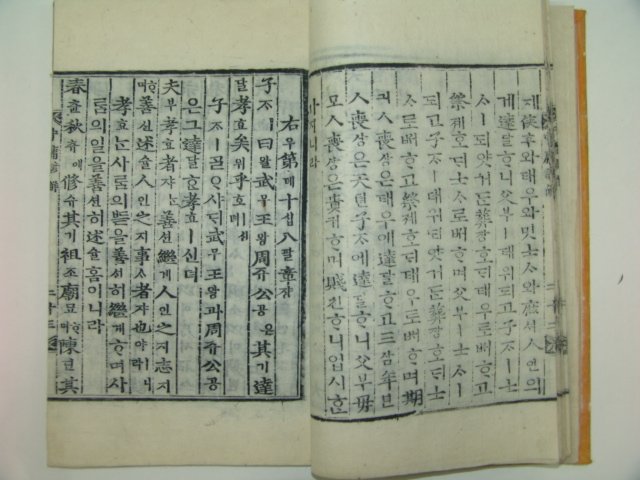 제侯후와태우와밋士ᄉᆞ와庶셔人인의
게達달ᄒᆞ니父부ㅣ태위되고子ᄌᆞㅣ士
ᄉᆞㅣ되엿거든葬장호ᄃᆡ태우로ᄡᅥᄒᆞ고
祭졔호ᄃᆡ士ᄉᆞ로ᄡᅥᄒᆞ며父부ㅣ士ᄉᆞㅣ
되고子ᄌᆞㅣ태위되엿거든葬장호ᄃᆡ士
ᄉᆞ로ᄡᅥᄒᆞ고祭졔호ᄃᆡ태우로ᄡᅥᄒᆞ며期
긔ㅅ喪상은태우에達달ᄒᆞ고三삼年년ㅅ
喪상은天텬子ᄌᆞ애達달ᄒᆞ니父부母
모ㅅ喪상은貴귀ᄒᆞ며賤쳔ᄒᆞ니업시ᄒᆞᆫ
가지니라
右우第뎨十십八팔章쟝
子ᄌᆞㅣ曰왈武무王왕周쥬公공은其기達
달孝효矣의乎호ㅣ신뎌
子ᄌᆞㅣᄀᆞᆯᄋᆞ샤ᄃᆡ武무王왕과周쥬公공
은그達달ᄒᆞᆫ孝효ㅣ신뎌
夫부孝효者쟈ᄂᆞᆫ善션繼계人인之지志지
ᄒᆞ며善션述슐人인之지事ᄉᆞ者쟈也야ㅣ니라
孝효ᄂᆞᆫ사ᄅᆞᆷ의ᄠᅳᆮ을善션히繼계ᄒᆞ며사
ᄅᆞᆷ의일을善션히述슐홈이니라
春츈秋츄에修슈其기祖조廟묘ᄒᆞ며陳딘其
中庸諺解
二十三